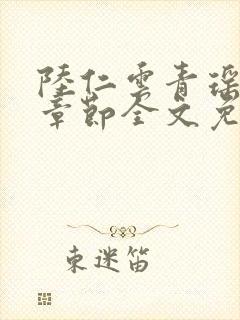 陸仁雲青瑶
章節全文免
東迷笛